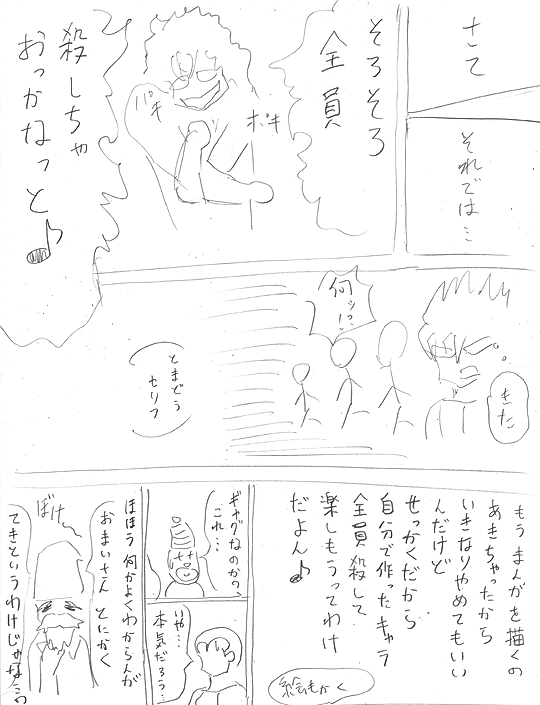 さて
それでは…
そろそろ
全員
殺しちゃ
おっかなっと♪
パキ
ポキ
きた
何ッ!?
とまどう
セリフ
もうまんがを描くの
あきちゃったから
いきなりやめてもいい
んだけど
せっかくだから
自分で作ったキャラ
全員殺して
楽しもうってわけ
だよん♪
絵もかく
ギャグなのかの?
これ…
いや…
本気だろう…
ほほう何かよくわからんが
おまいさん とにかく
てきというわけじゃな…
ぼけ〜